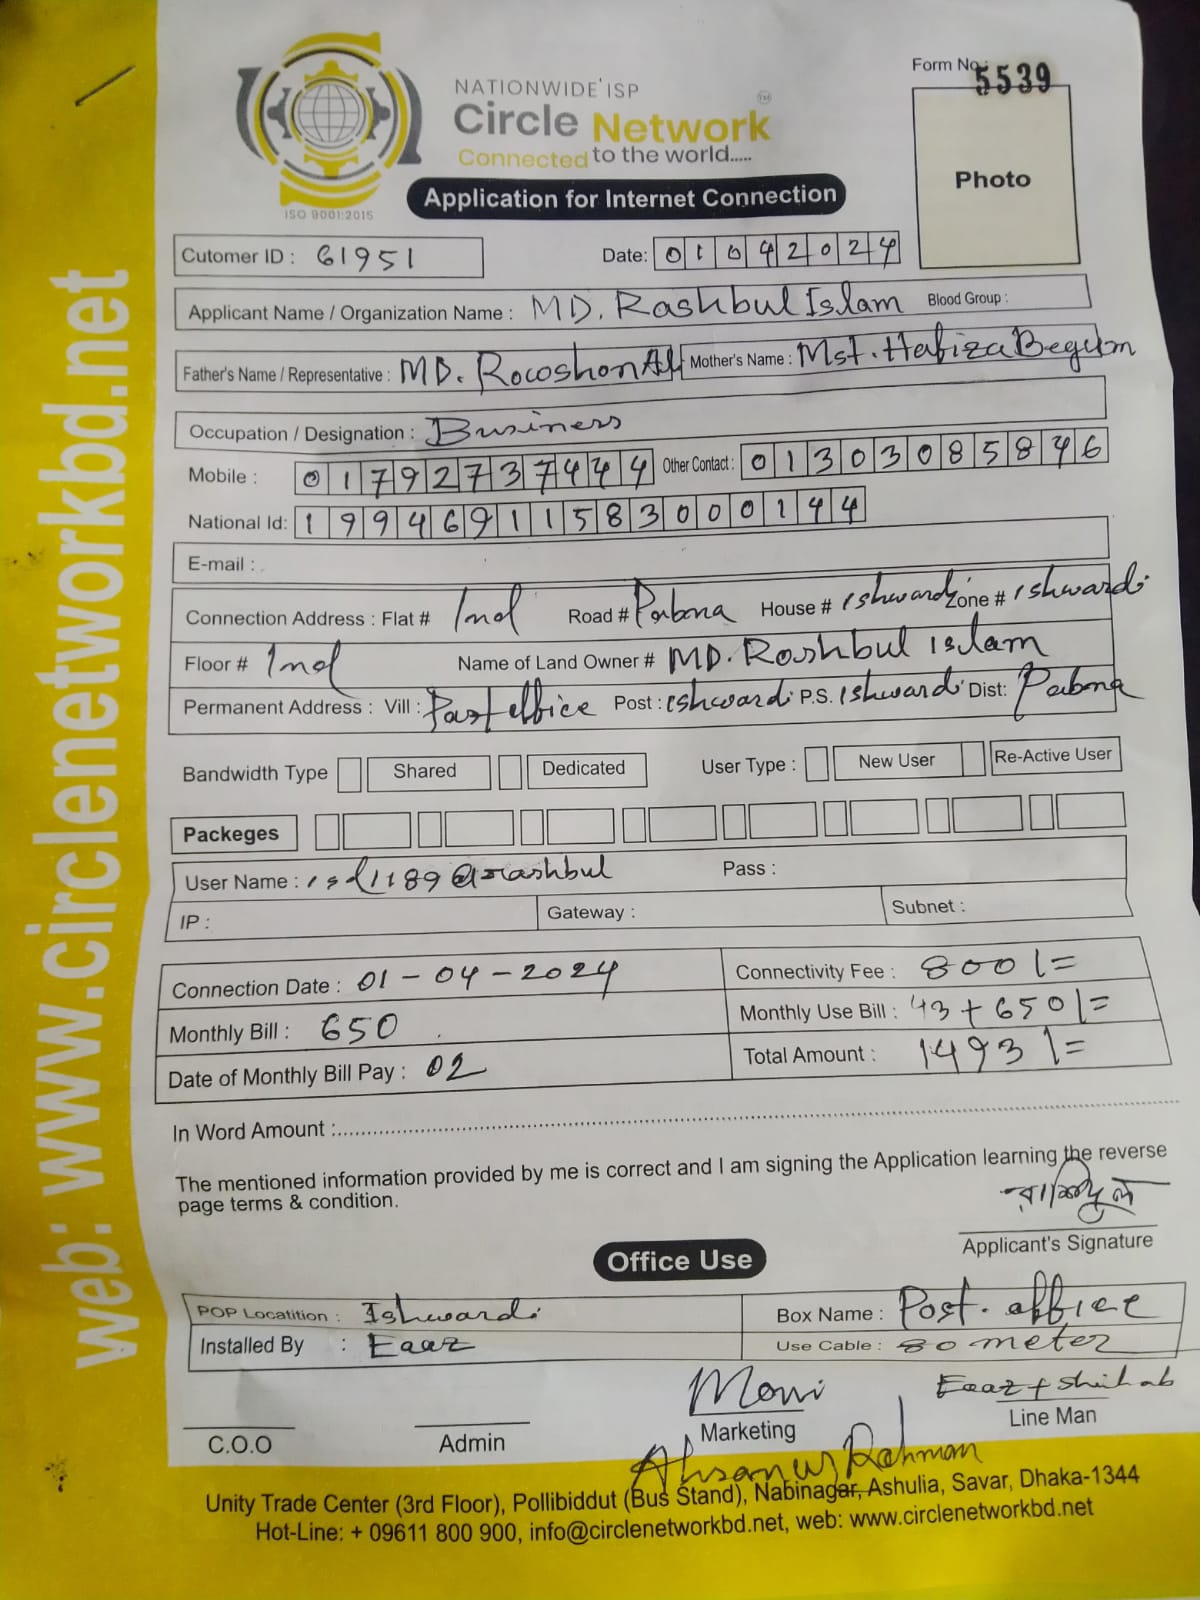 Form No.: 5539
NATIONWIDE ISP
Circle Network TM
Connected to the world.....
ISO 9001:2015
Photo
Application for Internet Connection
Cutomer ID : 61951 Date: 01042024
Applicant Name / Organization Name : MD. Rashbul Islam Blood Group :
Father's Name / Representative : MD. Rowoshon Ali Mother's Name : Mst. Hafiza Begum
Occupation / Designation : Business
Mobile : 01792737444 Other Contact : 01303085846
National Id: 19946911583000144
E-mail :
Connection Address : Flat # Ind Road # Pabna House # Ishwardi Zone # Ishwardi
Floor # Ind Name of Land Owner # MD. Roshbul islam
Permanent Address : Vill : Post office Post : Ishwardi P.S. Ishwardi Dist: Pabna
Bandwidth Type Shared Dedicated User Type : New User Re-Active User
Packeges
User Name : isd1189@rashbul Pass :
IP : Gateway : Subnet :
Connection Date : 01-04-2024 Connectivity Fee : 800/=
Monthly Bill : 650 Monthly Use Bill : 43+650/=
Date of Monthly Bill Pay : 02 Total Amount : 1493/=
In Word Amount :
The mentioned information provided by me is correct and I am signing the Application learning the reverse
page terms & condition.
রাশিদুল
Applicant's Signature
Office Use
POP Locatition : Ishwardi Box Name : Post. office
Installed By : Eaaz Use Cable : 80 meter
Moni Eaaz + Shihab
C.O.O Admin Marketing Line Man
Ahsanur Rahman
Unity Trade Center (3rd Floor), Pollibiddut (Bus Stand), Nabinagar, Ashulia, Savar, Dhaka-1344
Hot-Line: + 09611 800 900, info@circlenetworkbd.net, web: www.circlenetworkbd.net
web: www.circlenetworkbd.net